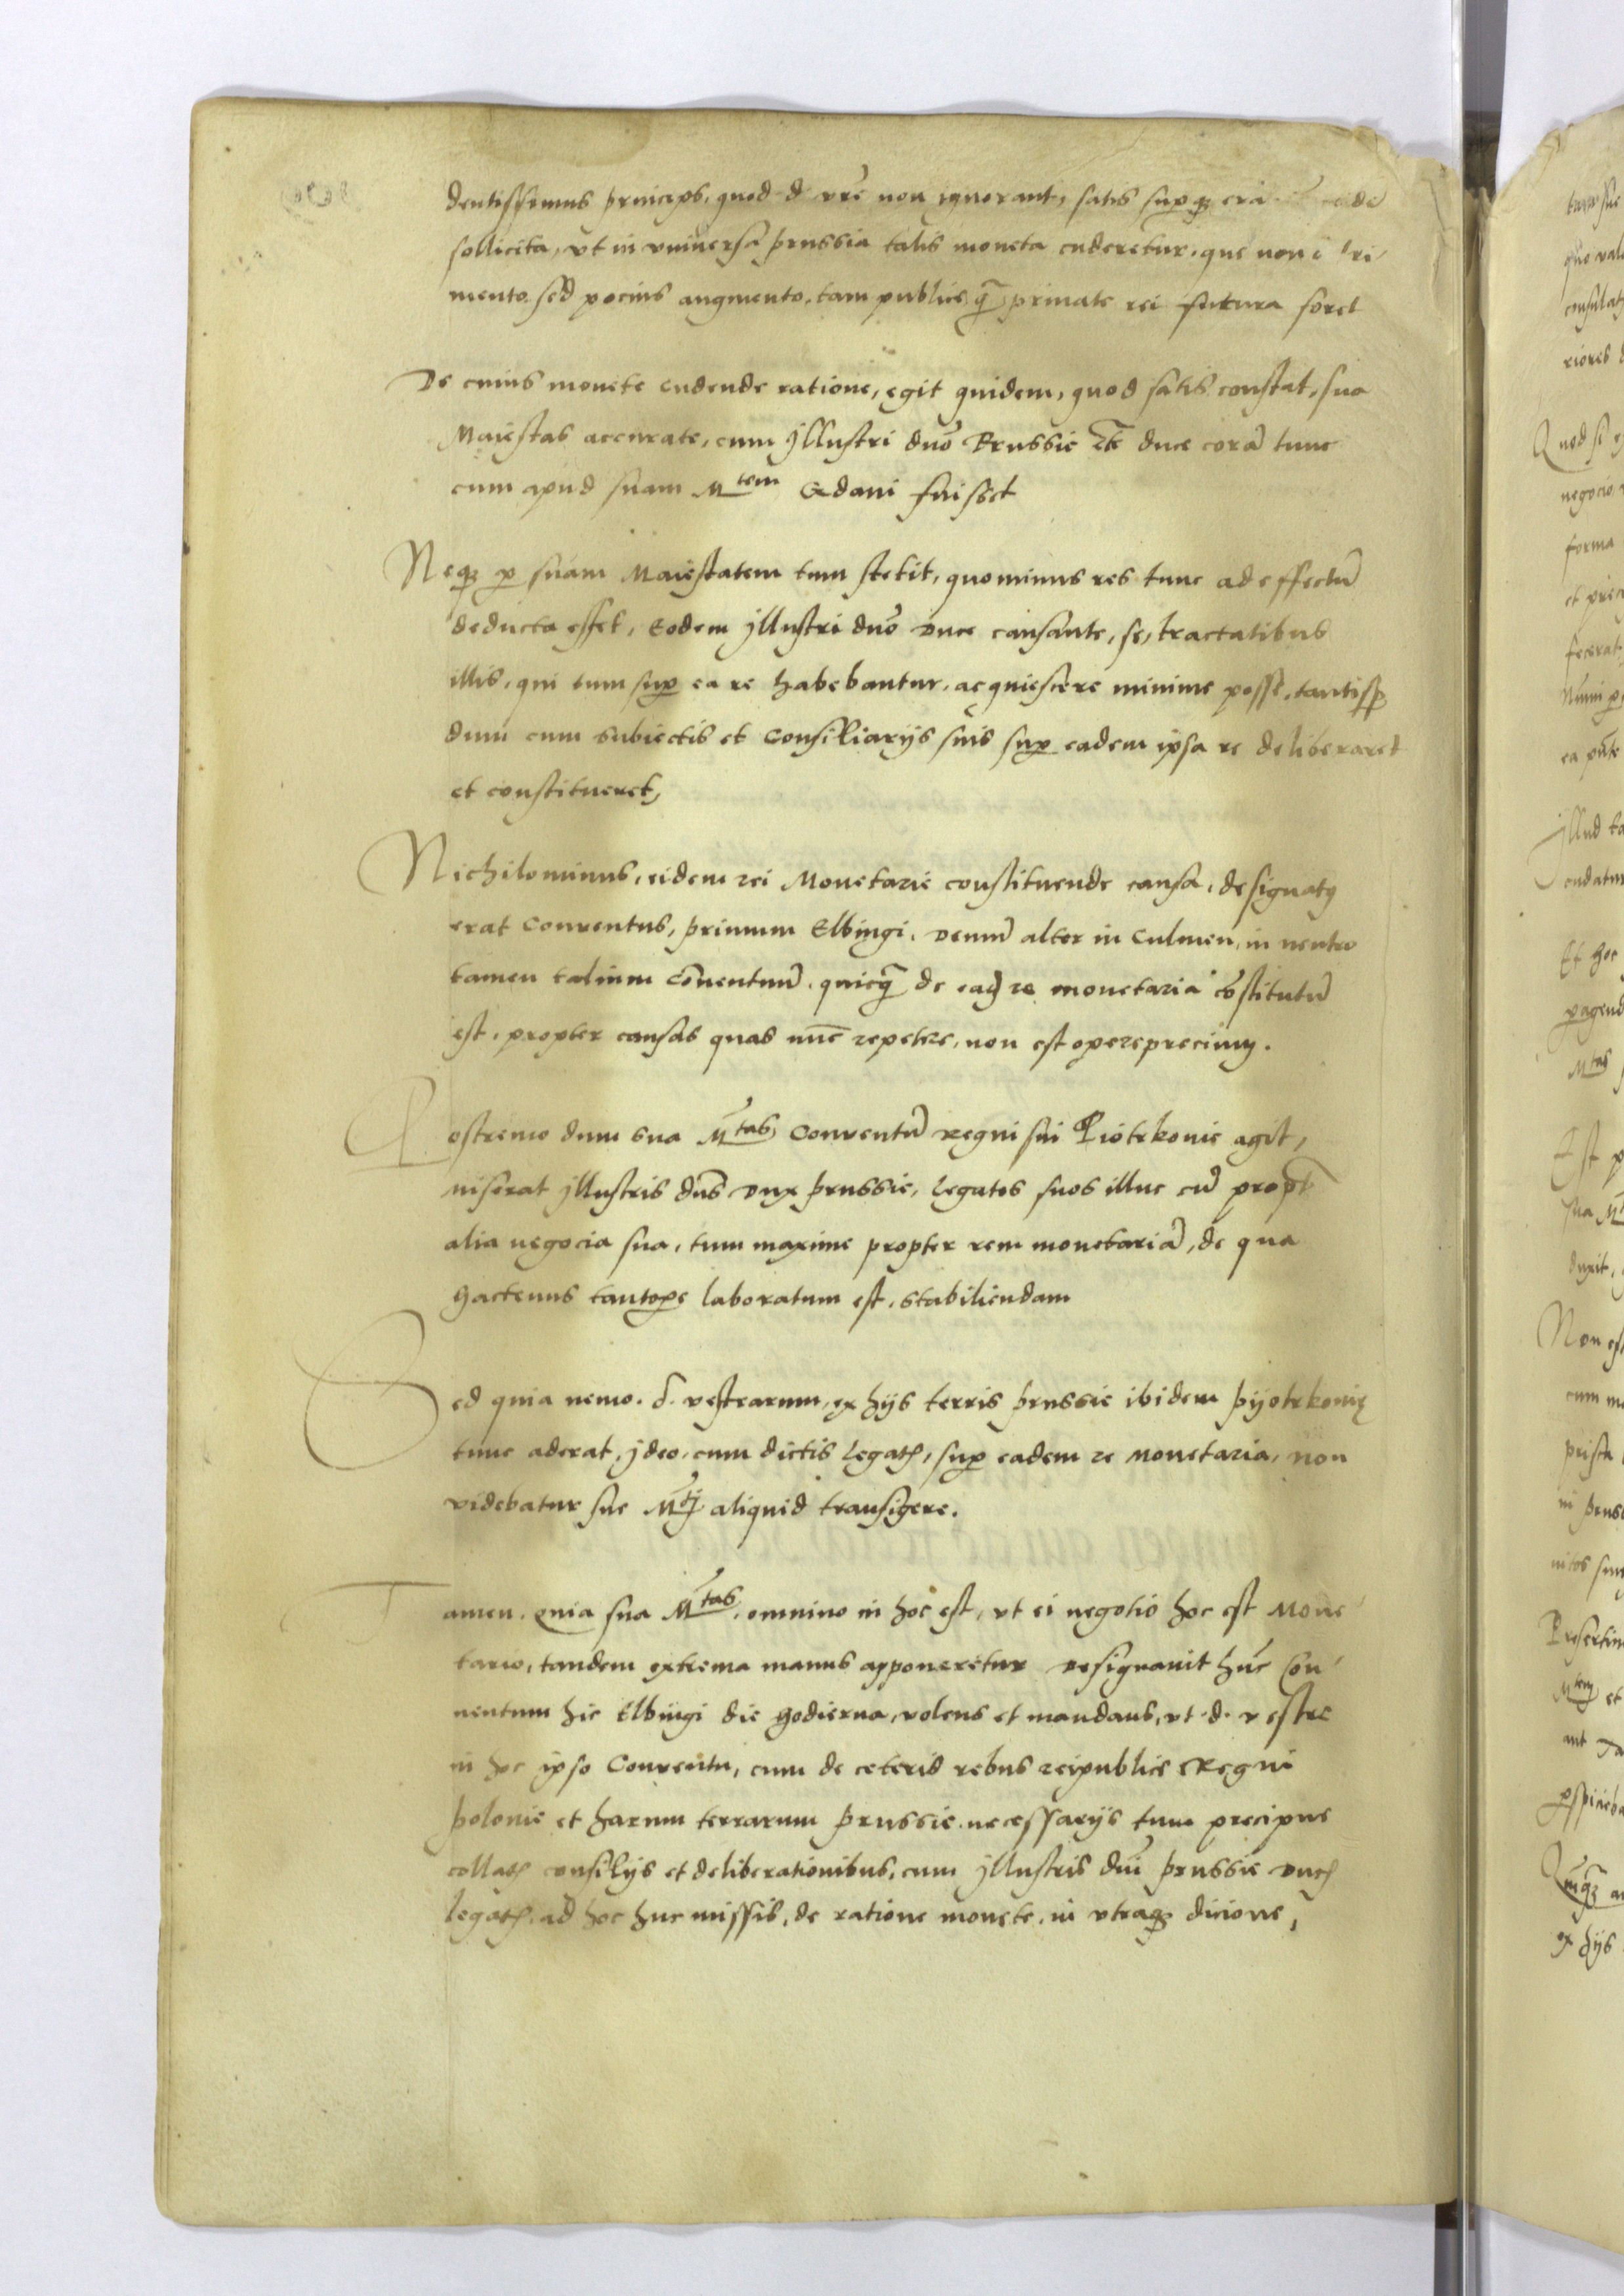 dentissimus princeps, quod d vrẽ non ignorant, satis supqȝ era
sollicita, vt in vniuersa prussia talis moneta cuderetur, que non
mento sed pocius augmento, tam publice q̃ priuate rei futura foret
De cuius monete cudende ratione, egit quidem, quod satis constat, sua
Maiestas accurate, cum jllustri dnõ Prussie etc̃ duce corã tunc
cum apud suam Mtem Gdani fuisset
Neqȝ p suam Maiestatem tum stetit, quominus res tunc ad effectũ
deducta esset, Eodem jllustri dnõ Duce causante, se, tractatibus
illis, qui tum sup ea re habebantur, acquiescere minime posse, tantisp
dum cum subiectis et Consiliarijs suis sup eadem ipsa re deliberaret
et constitueret,
Nichilominus, eidem rei Monetarie constituende causa, designatꝰ
erat Conuentus, primum Elbingi, Demũ alter in Culmen, in neutro
tamen talium Cõuentuũ, quicq̃ de eadẽ re monetaria cõstitutũ
est, propter causas quas nũc repetere, non est opereprecium.
Postremo dum sua Mtas Conuentũ regni sui Piotrkouie agit,
miserat jllustris dñs Dux prussie, legatos suos illuc cũ propt̃
alia negocia sua, tum maxime propter rem monetariã, de qua
hactenus tantope laboratum est, stabiliendam
Sed quia nemo. d. vestrarum, ex hijs terris prussie ibidem pijotrkouie
tunc aderat, jdeo, cum dictis legatꝭ, sup eadem re Monetaria, non
videbatur sue Mtj aliquid transigere.
Tamen, Quia sua Mtas, omnino in hoc est, vt ei negotio hoc est Mone
tario, tandem extrema manus apponeretur Designauit hũc Con
uentum hic Elbingi die hodierna, volens et mandans, vt d. vestre
in hoc ipso Conuentu, cum de ceteris rebus reipublice Regni
polonie et harum terrarum prussie necessarijs tum precipue
collatꝭ consilijs et deliberationibus, cum jllustris dnĩ prussie Ducꝭ
legatꝭ, ad hoc huc missis, de ratione monete, in vtraqȝ dicione,